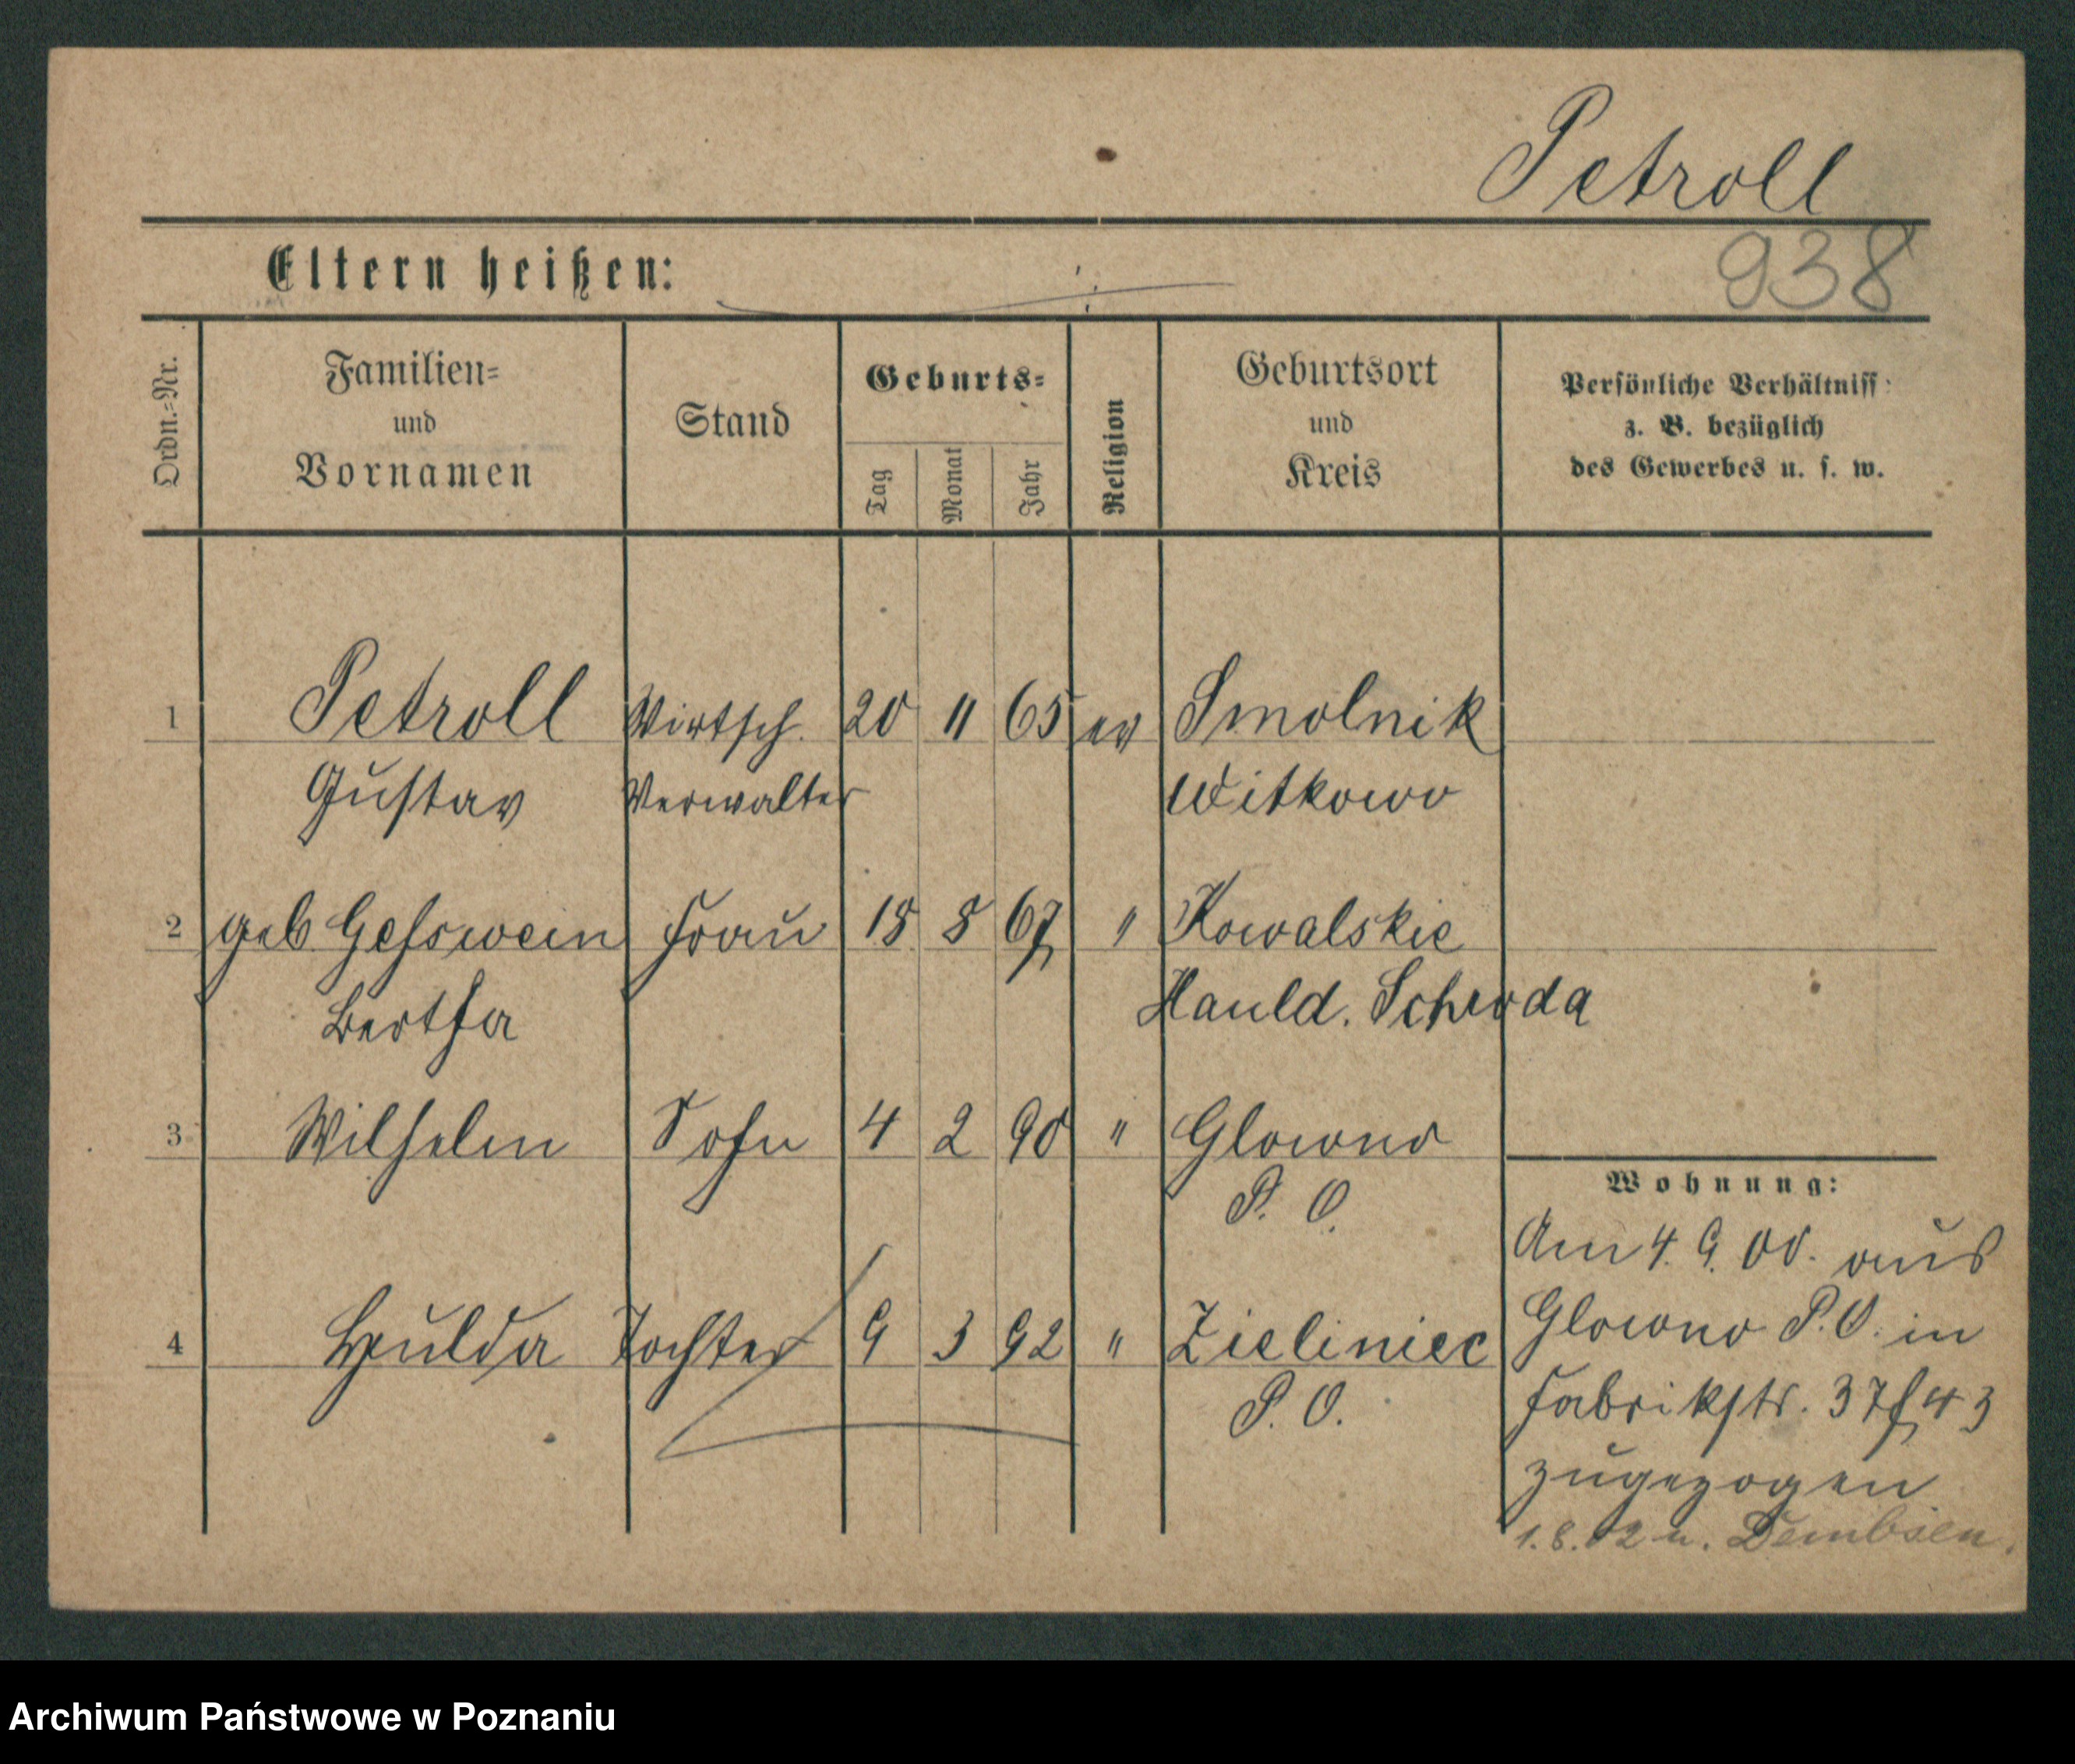 Petroll
938
Eltern heißen:
Ordn.=Nr.
Familien=
und
Vornamen
Stand
Geburts=
Tag
Monat
Jahr
Religion
Geburtsort
und
Kreis
Persönliche Verhältniss
z. B. bezüglich
des Gewerbes u. s. w.
1 Petroll Wirtsch. 20 11 65 ev Smolnik
Gustav Verwalter Witkowo
2 geb Gesswein Frau 18 8 67 " Kowalskie
Bertha Hauld. Schroda
3 Wilhelm Sohn 4 2 90 " Glowno
P. O.
4 Hulda Tochter 9 3 92 " Zieliniec
P. O.
Wohnung:
Am 4. 9. 00. aus
Glowno P. O. in
Fabrikstr. 37/43
zugezogen
1. 8. 02 n. Dembsen.
Archiwum Państwowe w Poznaniu